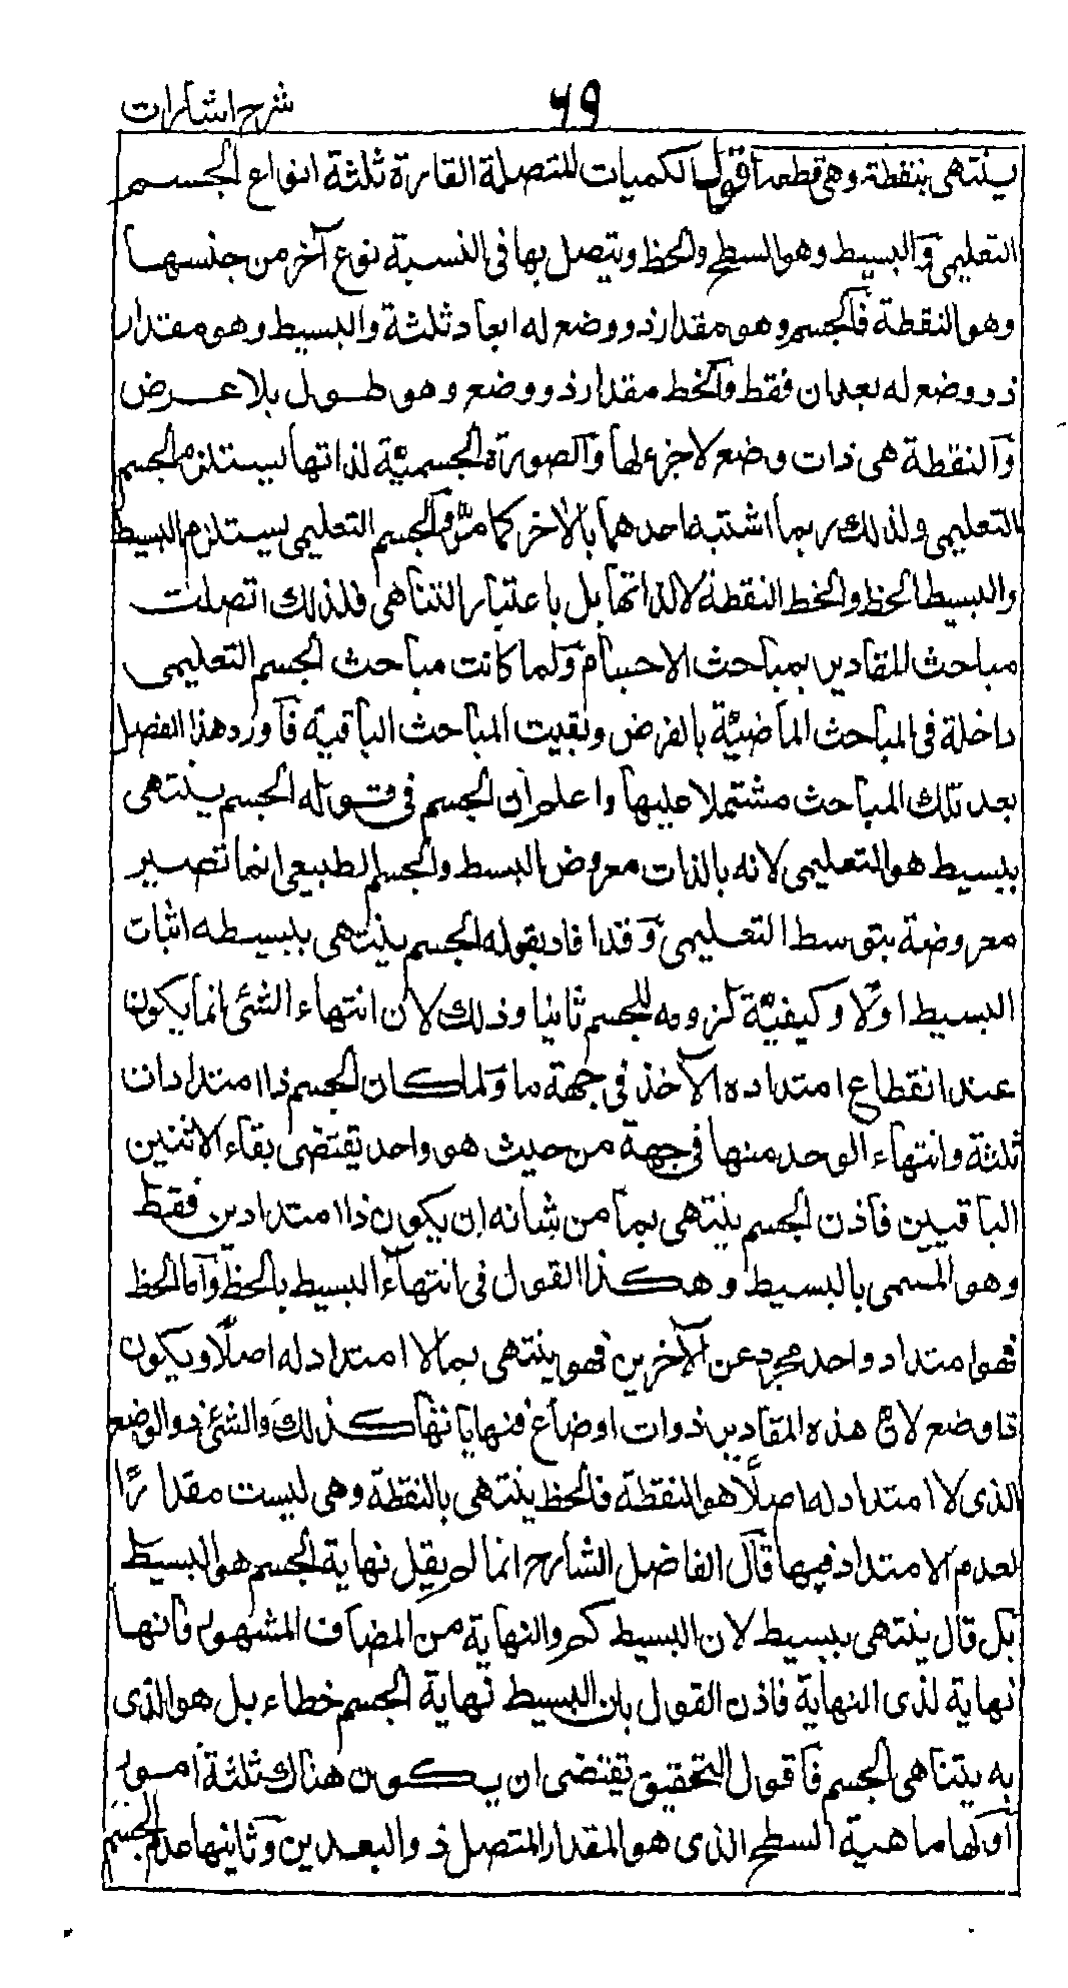 شرح اشارات
٦٩
ينتهى بنقطة وهى قطعه اقول الكميات المتصلة القارة ثلثة انواع الجسم
التعليمى والبسيط وهو السطح والخط ويتصل بها فى النسبة نوع آخر من جنسها
وهو النقطة فالجسم وهو مقدار ذو وضع له ابعاد ثلثة والبسيط وهو مقدار
ذو وضع له بعدان فقط والخط مقدار ذو وضع وهو طول بلا عرض
والنقطة هى ذات وضع لا جزء لها والصورة الجسمية لذاتها يستلزم الجسم
التعليمى ولذلك ربما اشتبه احدهما بالآخر كما مرّ والجسم التعليمى يستلزم البسيط
والبسيط الخط والخط النقطة لا لذاتها بل باعتبار التناهى فلذلك اتصلت
مباحث المقادير بمباحث الاجسام ولما كانت مباحث الجسم التعليمى
داخلة فى المباحث الماضية بالفرض وبقيت المباحث الباقية فاورد هذا الفصل
بعد تلك المباحث مشتملا عليها واعلم ان الجسم فى قوله الجسم ينتهى
ببسيط هو التعليمى لانه بالذات معروض البسط والجسم الطبيعى انما تصير
معروضة بتوسط التعليمى وقد افاد بقوله الجسم ينتهى ببسيطه اثبات
البسيط اولا وكيفية لزومه للجسم ثانيا وذلك لان انتهاء الشئ انما يكون
عند انقطاع امتداده الآخذ فى جهة ما ولما كان الجسم ذا امتدادات
ثلثة وانتهاء الوحد منها فى جهة من حيث هو واحد يقتضى بقاء الاثنين
الباقيين فاذن الجسم ينتهى بما من شانه ان يكون ذا امتدادين فقط
وهو المسمى بالبسيط وهكذا القول فى انتهاء البسيط بالخط واما الخط
فهو امتداد واحد مجرد عن الآخرين فهو ينتهى بما لا امتداد له اصلا ويكون
ذا وضع لان هذه المقادير ذوات اوضاع فنهاياتها كذلك والشئ ذو الوضع
الذى لا امتداد له اصلا هو النقطة فالخط ينتهى بالنقطة وهى ليست مقدارا
لعدم الامتداد فيها قال الفاضل الشارح انما لم يقل نهاية الجسم هو البسيط
بل قال ينتهى ببسيط لان البسيط كم والنهاية من المضاف المشهور فانها
نهاية لذى النهاية فاذن القول بان البسيط نهاية الجسم خطاء بل هو الذى
به يتناهى الجسم فاقول التحقيق تقتضى ان يكون هناك ثلثة امور
اولها ماهية السطح الذى هو المقدار المتصل ذو البعدين وثانيها عدم الجسم